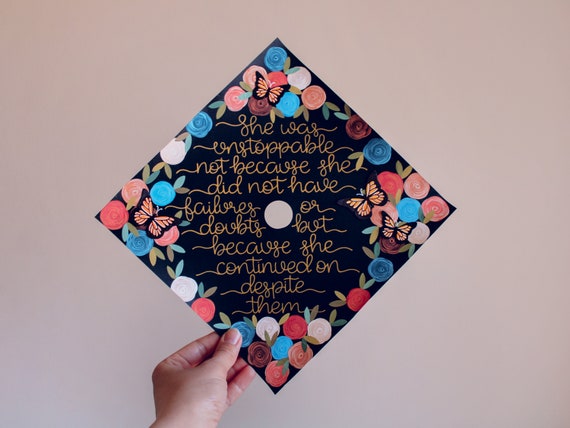 She was
unstoppable
not because she
did not have
failures or
doubts but
because she
continued on
despite
them